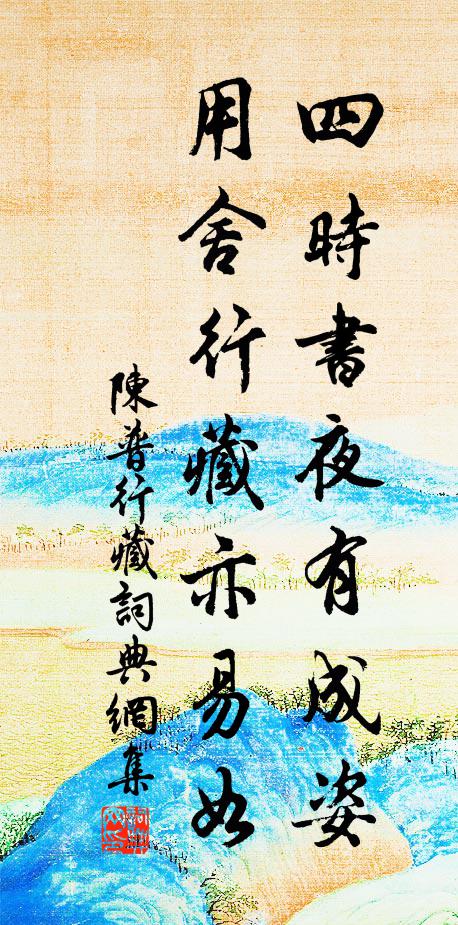 四時書夜有成姿
用舍行藏亦易如
陳普行藏詞典網集